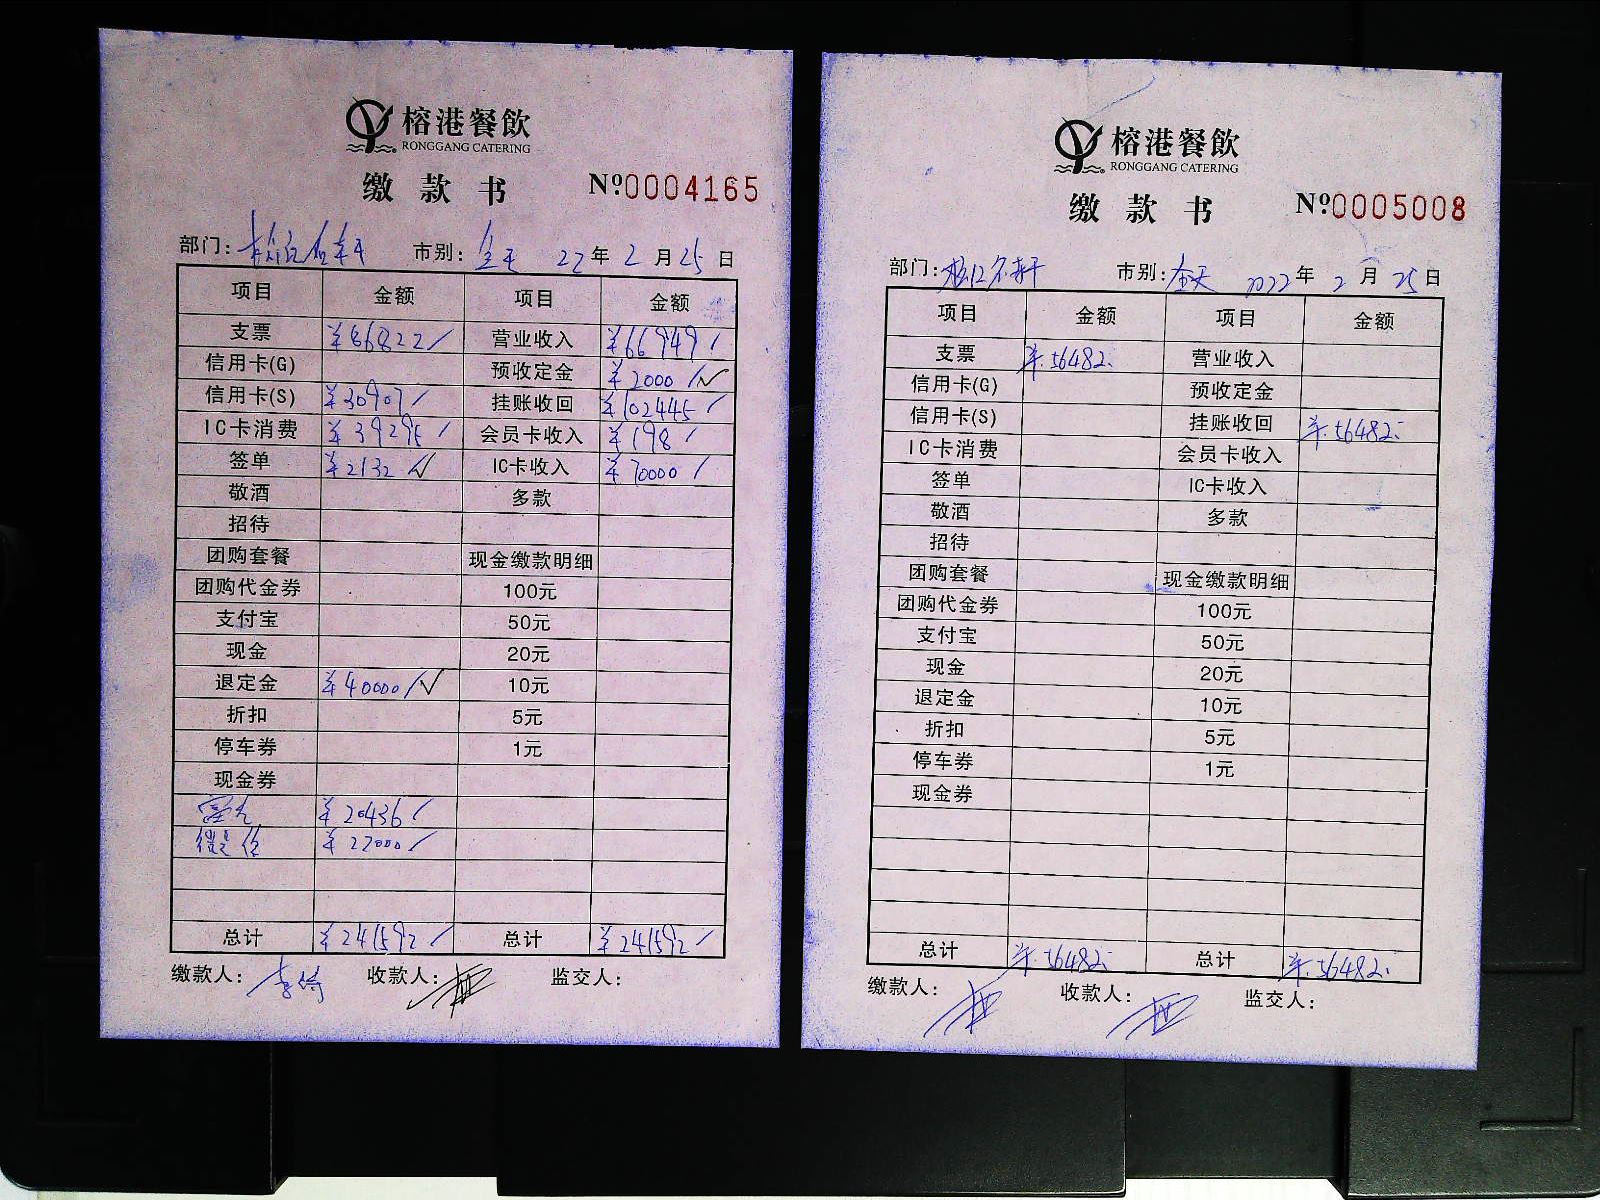 榕港餐飲
RONGGANG CATERING
缴款书 №0004165
部门: 市别: 全天 22年2月25日
项目 金额 项目 金额
支票 ¥86822 营业收入 ¥66949
信用卡(G) 预收定金 ¥2000
信用卡(S) ¥30907 挂账收回 ¥102445
IC卡消费 ¥39295 会员卡收入 ¥198
签单 ¥2132 IC卡收入 ¥70000
敬酒 多款
招待
团购套餐 现金缴款明细
团购代金券 100元
支付宝 50元
现金 20元
退定金 ¥40000 10元
折扣 5元
停车券 1元
现金券
¥20436
¥22000
总计 ¥241592 总计 ¥241592
缴款人: 收款人: 监交人:
榕港餐飲
RONGGANG CATERING
缴款书 №0005008
部门: 市别: 全天 2022年2月25日
项目 金额 项目 金额
支票 ¥56482 营业收入
信用卡(G) 预收定金
信用卡(S) 挂账收回 ¥56482
IC卡消费 会员卡收入
签单 IC卡收入
敬酒 多款
招待
团购套餐 现金缴款明细
团购代金券 100元
支付宝 50元
现金 20元
退定金 10元
折扣 5元
停车券 1元
现金券
总计 ¥56482 总计 ¥56482
缴款人: 收款人: 监交人: